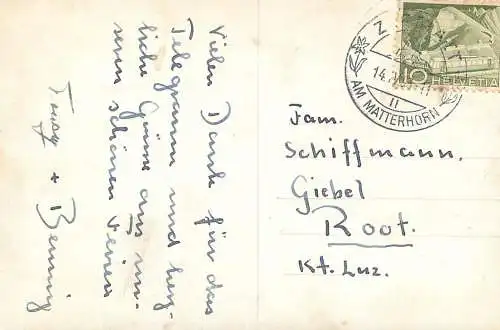 Vielen Dank für das
Telegramm und herz-
liche Grüsse aus un-
seren schönen Ferien
+ Benny
Fam.
Schiffmann,
Giebel
Root.
Kt. Luz.
Z
14.
11
AM MATTERHORN
10
HELVETIA